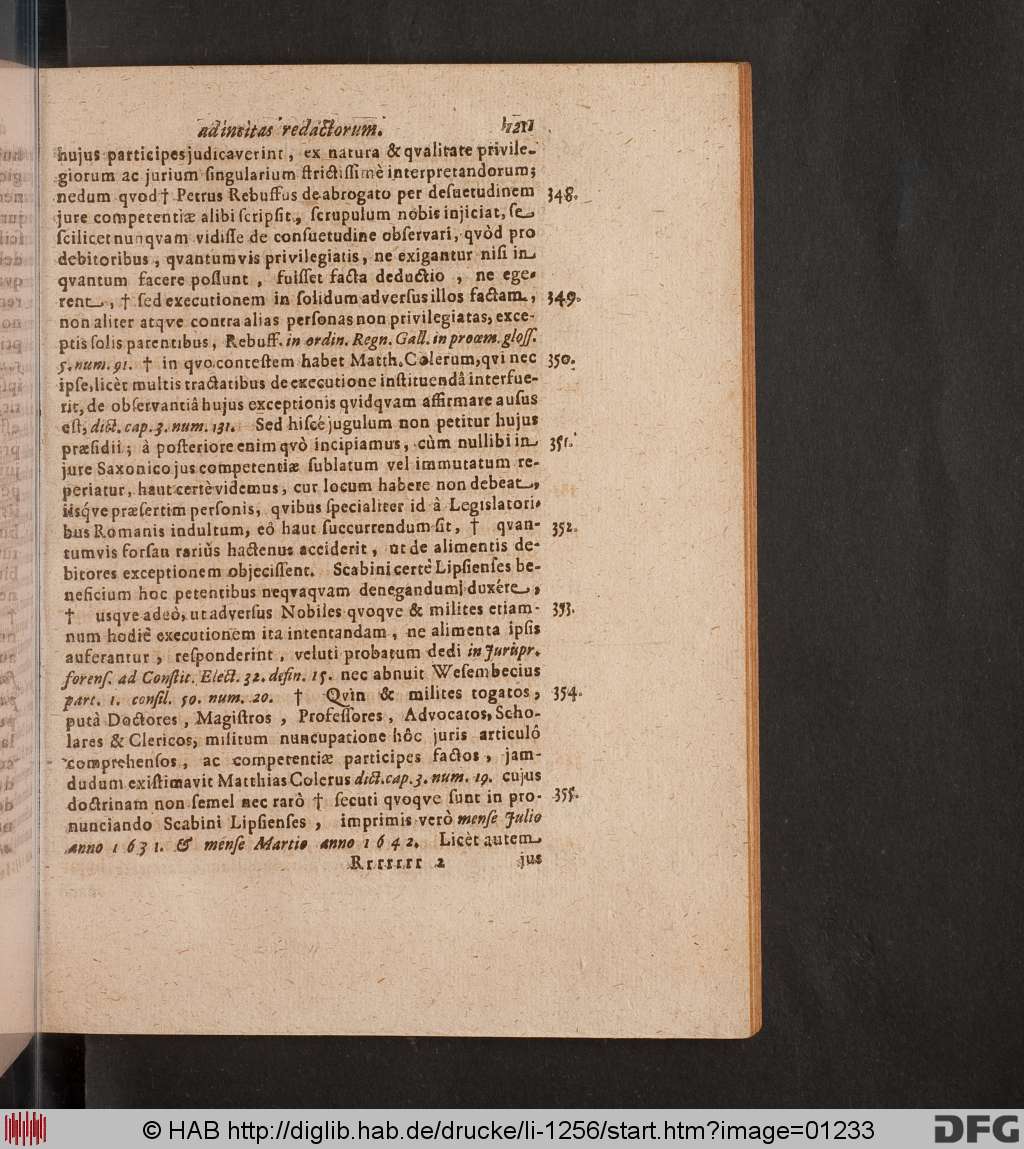 ad incitas redactorum. 1211
hujus participes judicaverint, ex natura & qvalitate privile-
giorum ac jurium ſingularium ſtrictiſſimè interpretandorum;
nedum qvod † Petrus Rebuffus de abrogato per deſuetudinem 348.
jure competentiæ alibi ſcripſit, ſcrupulum nobis injiciat, ſe
ſcilicet nunqvam vidiſſe de conſuetudine obſervari, qvòd pro
debitoribus, qvantumvis privilegiatis, ne exigantur niſi in
qvantum facere poſſunt, fuiſſet facta deductio, ne ege-
rent, † ſed executionem in ſolidum adverſus illos factam, 349.
non aliter atqve contra alias perſonas non privilegiatas, exce-
ptis ſolis parentibus, Rebuff. in ordin. Regn. Gall. in proœm. gloſſ.
5. num. 91. † in qvo conteſtem habet Matth. Colerum, qvi nec 350.
ipſe, licèt multis tractatibus de executione inſtituendâ interfue-
rit, de obſervantiâ hujus exceptionis qvidqvam affirmare auſus
eſt, dict. cap. 3. num. 131. Sed hiſce jugulum non petitur hujus
præſidii; à poſteriore enim qvò incipiamus, cùm nullibi in 351.
jure Saxonico jus competentiæ ſublatum vel immutatum re-
periatur, haut certè videmus, cur locum habere non debeat,
iisq́ve præſertim perſonis, qvibus ſpecialiter id à Legislatori-
bus Romanis indultum, eô haut ſuccurrendum ſit, † qvan- 352.
tumvis forſan rariùs hactenus acciderit, ut de alimentis de-
bitores exceptionem objeciſſent. Scabini certè Lipſienſes be-
neficium hoc petentibus neqvaqvam denegandum duxére,
† usqve adeò, ut adverſus Nobiles qvoqve & milites etiam- 353.
num hodiè executionem ita intentandam, ne alimenta ipſis
auferantur, reſponderint, veluti probatum dedi in Jurispr.
forenſ. ad Conſtit. Elect. 32. defin. 15. nec abnuit Weſembecius
part. 1. conſil. 50. num. 20. † Qvin & milites togatos, 354.
putà Doctores, Magiſtros, Profeſſores, Advocatos, Scho-
lares & Clericos, militum nuncupatione hôc juris articulô
comprehenſos, ac competentiæ participes factos, jam-
dudum exiſtimavit Matthias Colerus dict. cap. 3. num. 19. cujus
doctrinam non ſemel nec rarò † ſecuti qvoqve ſunt in pro- 355.
nunciando Scabini Lipſienſes, imprimis verò menſe Julio
anno 1631. & menſe Martio anno 1642. Licèt autem
Rrrrrrr 2 jus
© HAB http://diglib.hab.de/drucke/li-1256/start.htm?image=01233
DFG